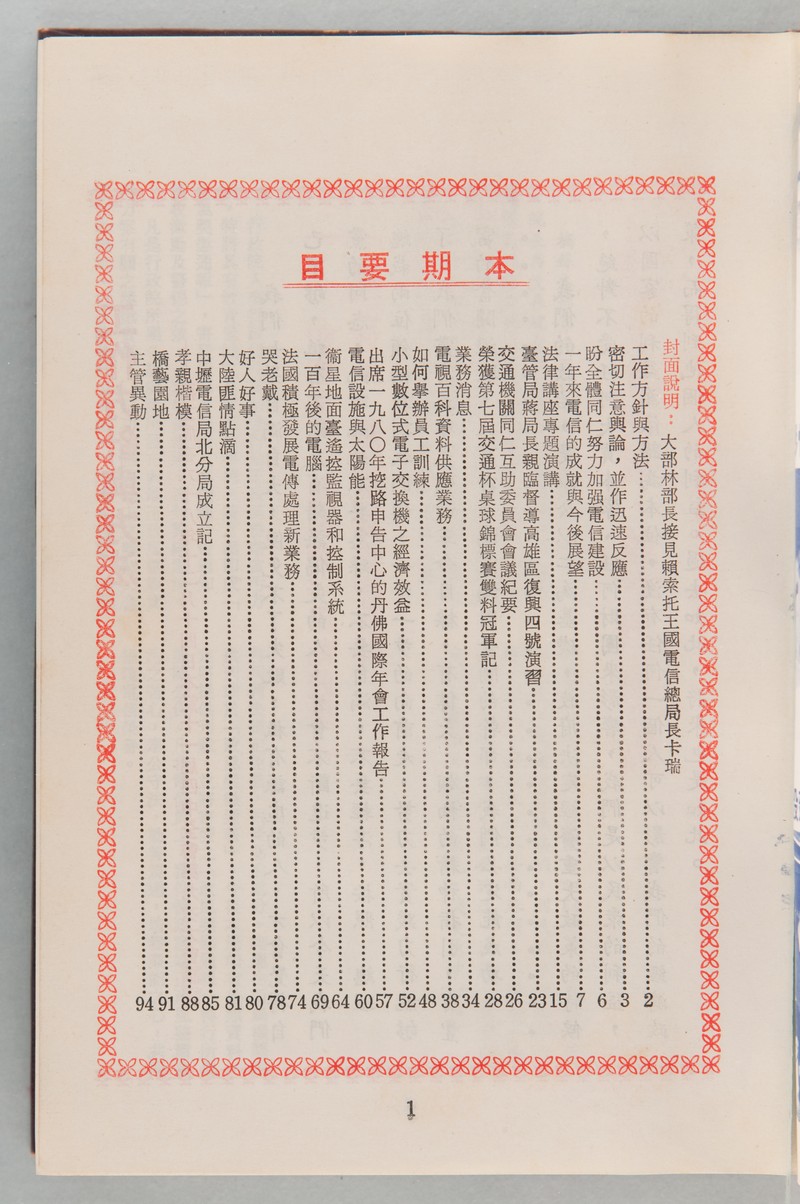 本期要目
封面說明：大部林部長接見賴索托王國電信總局長卡瑞
工作方針與方法……2
密切注意輿論，並作迅速反應……3
盼全體同仁努力加强電信建設……6
一年來電信的成就與今後展望……7
法律講座專題演講……15
臺管局蔣局長親臨督導高雄區復興四號演習……23
交通機關同仁互助委員會會議紀要……26
榮獲第七屆交通杯桌球錦標賽雙料冠軍記……28
業務消息……34
電視百科資料供應業務……38
如何舉辦員工訓練……48
小型數位式電子交換機之經濟效益……52
出席一九八〇年挖路申告中心的丹佛國際年會工作報告……57
電信設施與太陽能……60
衞星地面臺遙控監視器和控制系統……64
一百年後的電腦……69
法國積極發展電傳處理新業務……74
哭老戴……78
好人好事……80
大陸匪情點滴……81
中壢電信局北分局成立記……85
孝親楷模……88
橋藝園地……91
主管異動……94
1